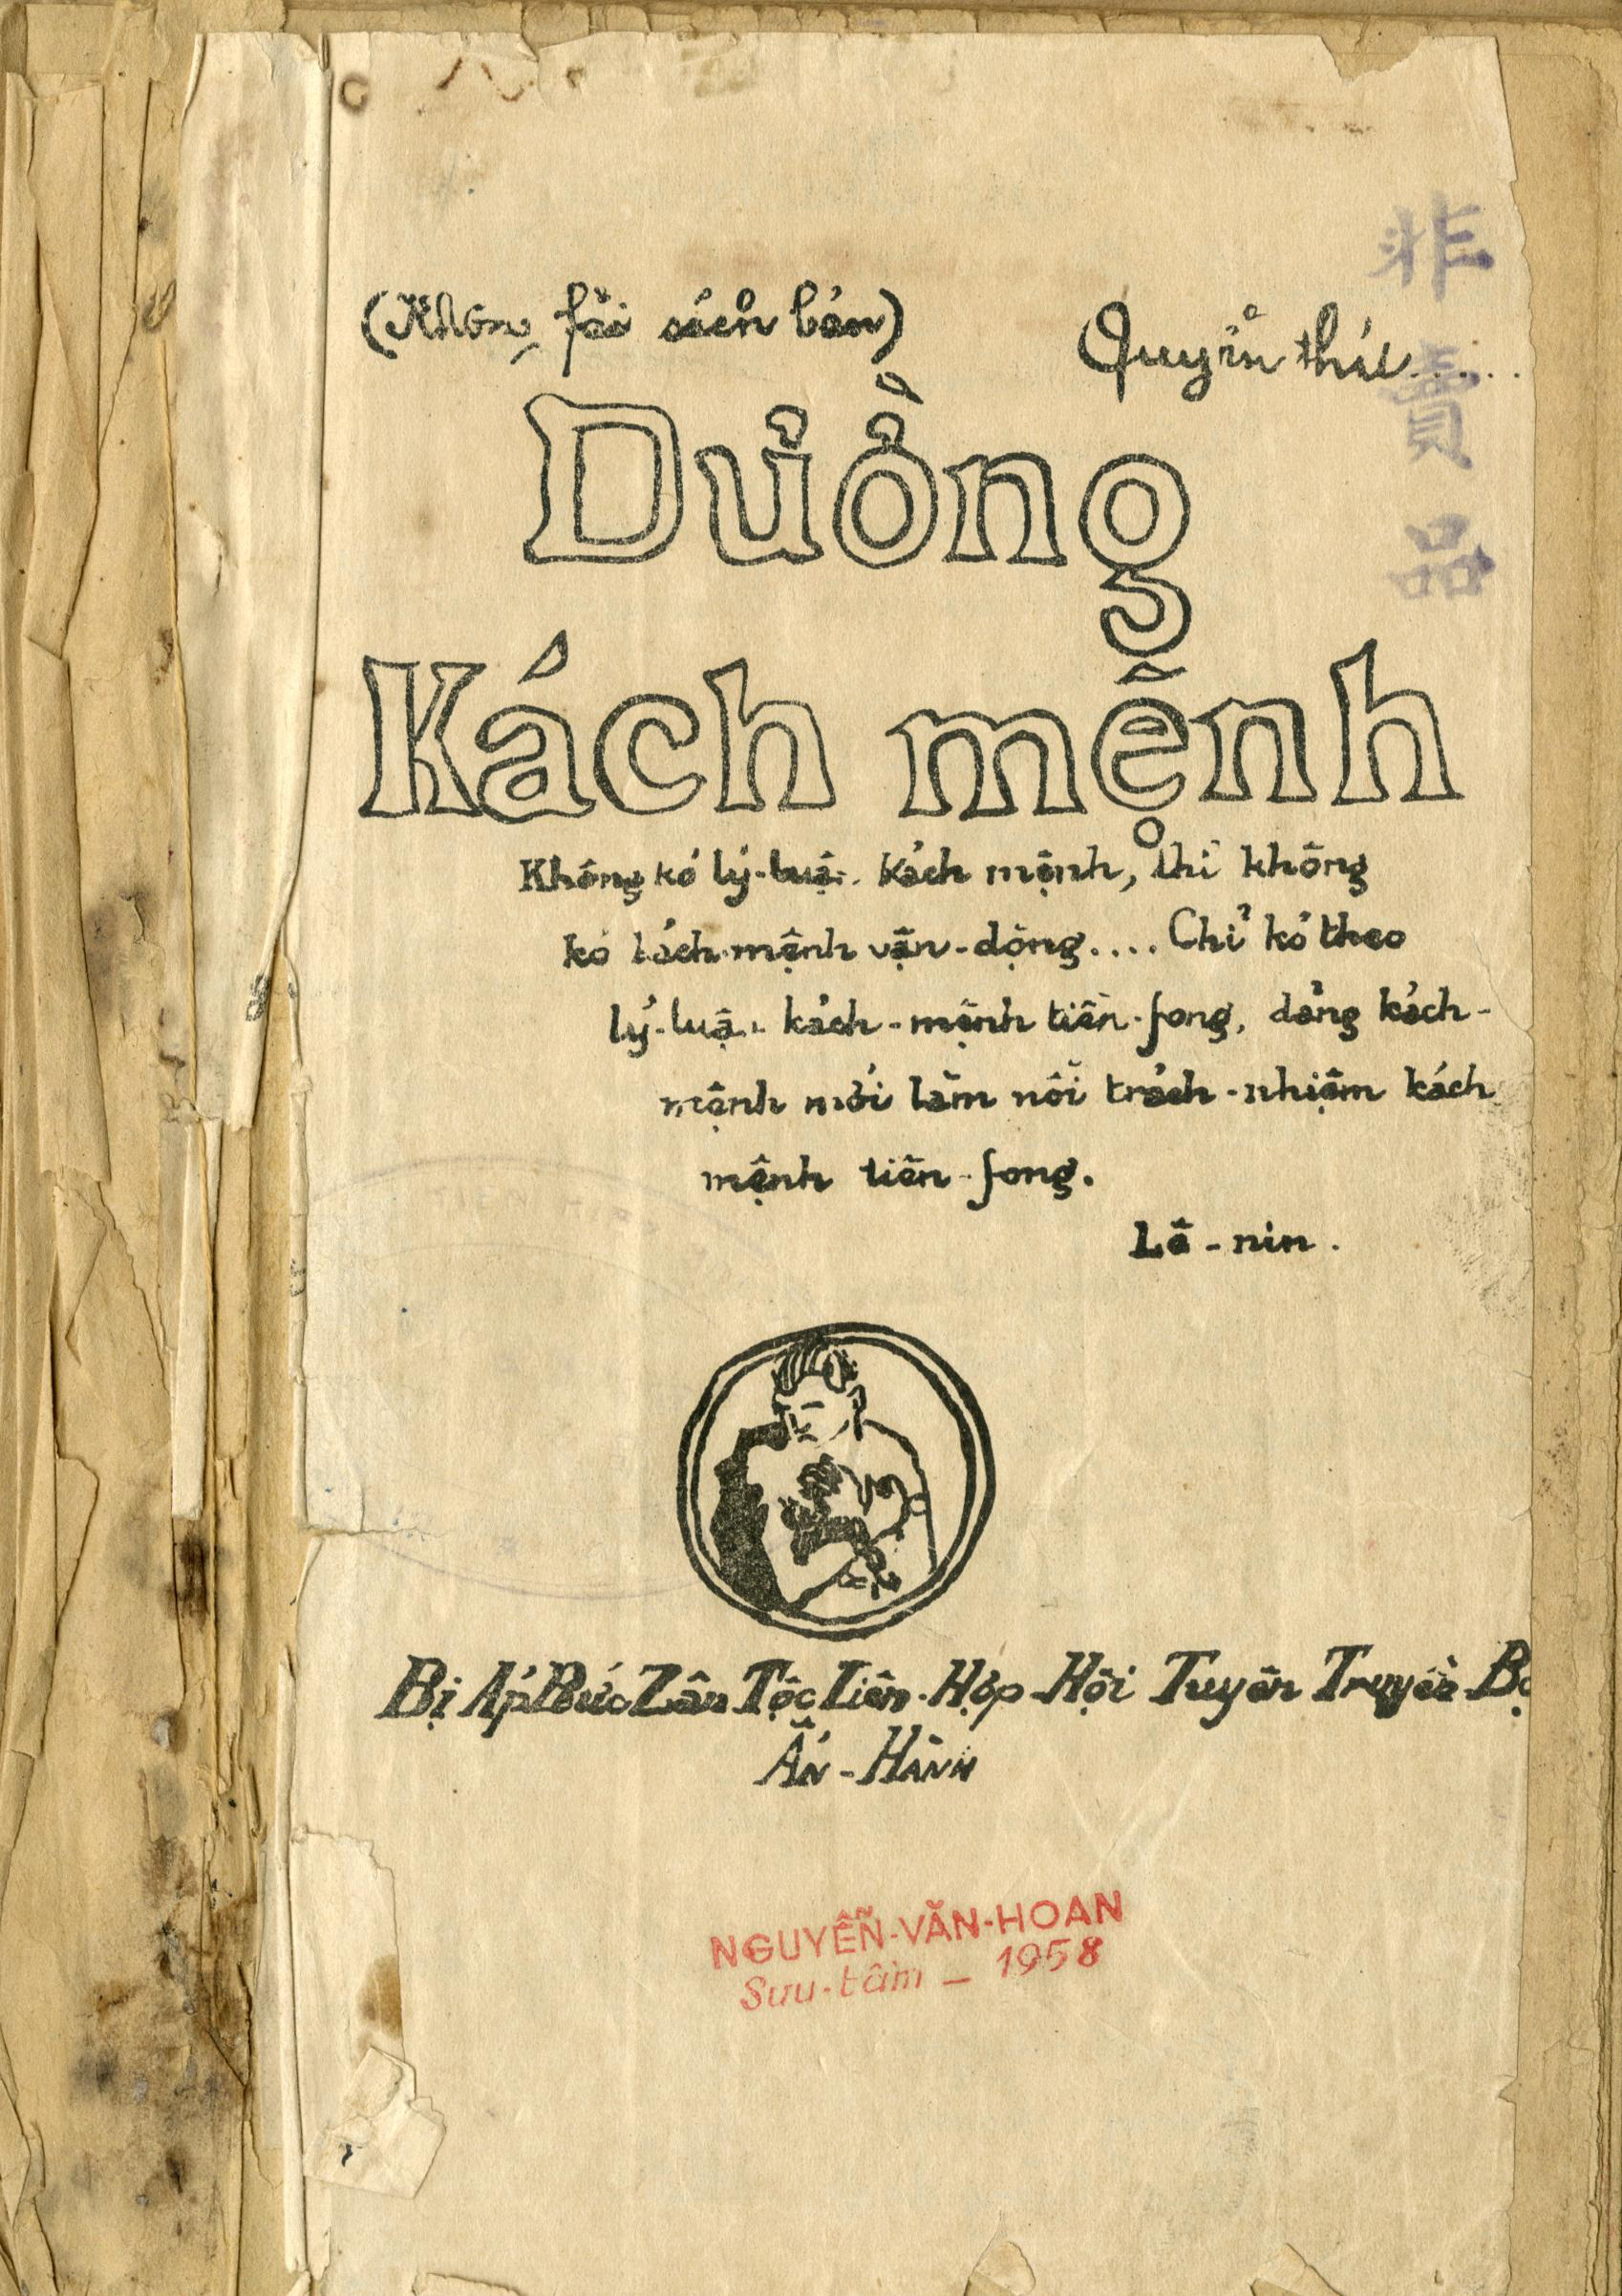 (Không fải sách bán)
Quyển thứ......
非賣品
Đường
Kách mệnh
Không kó lý-luận kách mệnh, thì không
kó kách mệnh vận-động.... Chỉ kó theo
lý-luận kách-mệnh tiền-fong, đảng kách-
mệnh mới làm nổi trách-nhiệm kách
mệnh tiền-fong.
Lê-nin.
Bị Áp Bức Zân Tộc Liên-Hợp-Hội Tuyên Truyền Bộ
Ấn-Hành
NGUYỄN-VĂN-HOAN
Sưu-tầm - 1958